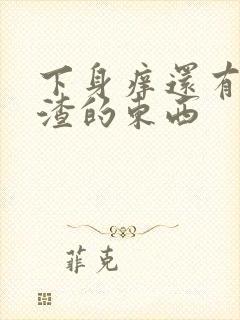 下身痒還有
渣的東西
菲克